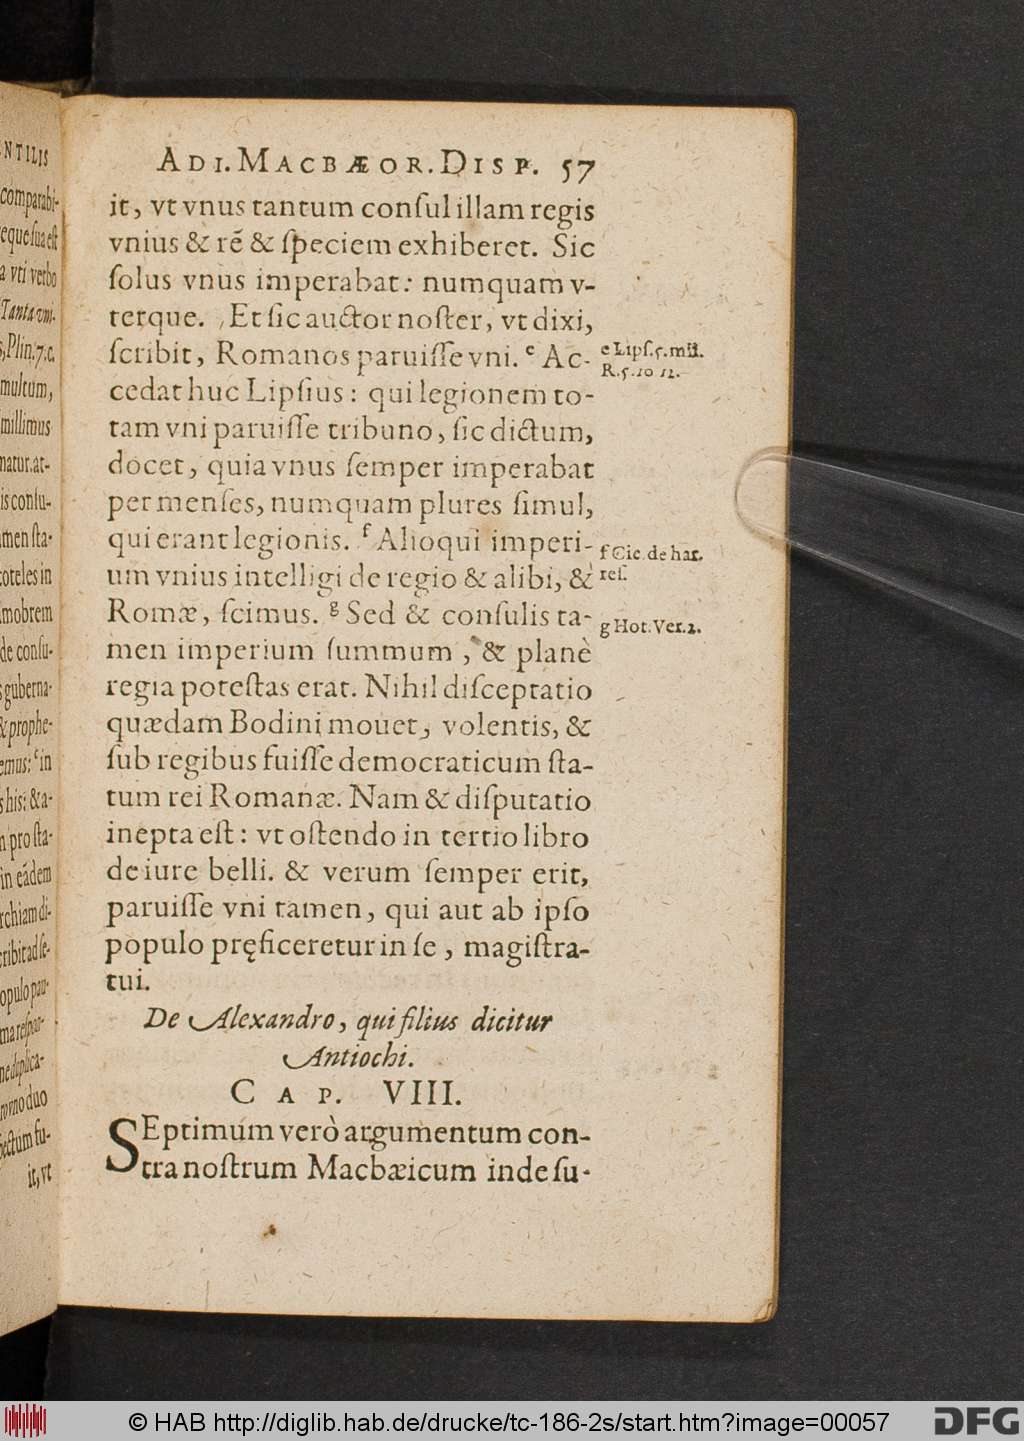 NTILIS
comparabi-
eque sua est
a vti verbo
Tanta vni-
Plin. 7. c.
multum,
millimus
natur. at-
is consu-
men sta-
toteles in
mobrem
de consu-
s guberna-
& prophe-
emus: ᶜ in
s his: & a-
n pro sta-
in eādem
rchiam di-
cribit ad se-
opulo pau-
ma respar-
ne duplica-
rovno duo
ectum fu-
it, vt
ADI. MACBÆOR. DISP. 57
it, vt vnus tantum conſul illam regis
vnius & rē & ſpeciem exhiberet. Sic
ſolus vnus imperabat: numquam v-
terque. Et ſic auctor noſter, vt dixi,
ſcribit, Romanos paruiſſe vni. ᵉ Ac-
cedat huc Lipſius: qui legionem to-
tam vni paruiſſe tribuno, ſic dictum,
docet, quia vnus ſemper imperabat
per menſes, numquam plures ſimul,
qui erant legionis. ᶠ Alioqui imperi-
um vnius intelligi de regio & alibi, &
Romæ, ſcimus. ᵍ Sed & conſulis ta-
men imperium ſummum, & planè
regia poteſtas erat. Nihil diſceptatio
quædam Bodini mouet, volentis, &
ſub regibus fuiſſe democraticum ſta-
tum rei Romanæ. Nam & diſputatio
inepta eſt: vt oſtendo in tertio libro
de iure belli. & verum ſemper erit,
paruiſſe vni tamen, qui aut ab ipſo
populo pręficeretur in ſe, magiſtra-
tui.
De Alexandro, qui filius dicitur
Antiochi.
CAP. VIII.
SEptimum verò argumentum con-
tra noſtrum Macbæicum inde ſu-
e Lipſ. 5. mil.
R. 5. 10 12.
f Cic. de har.
reſ.
g Hot. Ver. 2.
© HAB http://diglib.hab.de/drucke/tc-186-2s/start.htm?image=00057
DFG